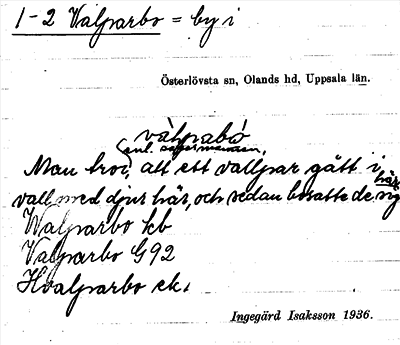 1-2 Valparbo = by i
Österlövsta sn, Olands hd, Uppsala län.
válpabó
(enl. sagesmannen,
Man tror, att ett vallpar gått i
vall med djur här, och sedan bosatte de sig
här
Walparbo kb
Valparbo G92
Hvalparbo ek.
Ingegärd Isaksson 1936.